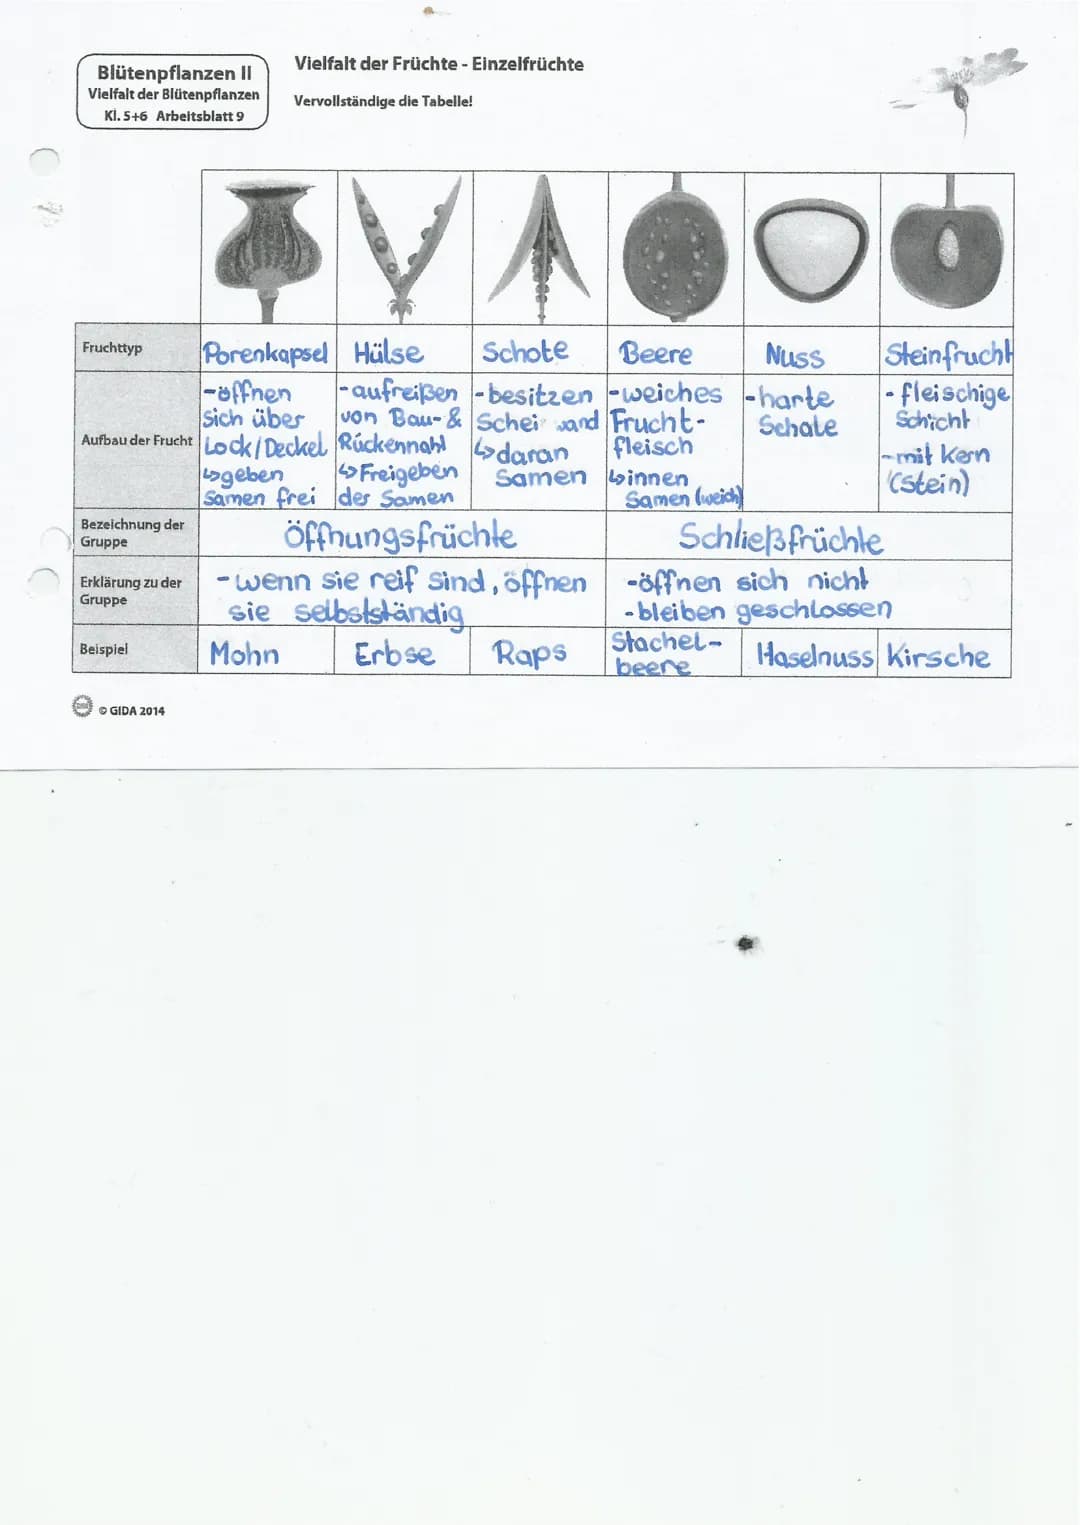 Blütenpflanzen II
Vielfalt der Blütenpflanzen
Kl. 5+6 Arbeitsblatt 9
Vielfalt der Früchte - Einzelfrüchte
Vervollständige die Tabelle!
Fruchttyp
Porenkapsel
Hülse
Schote
Beere
Nuss
Steinfrucht
Aufbau der Frucht
-öffnen
sich über
Lock/Deckel
↳geben
Samen frei
-aufreißen
von Bau-&
Rückennahl
↳Freigeben
des Samen
-besitzen
Schei wand
↳daran
Samen
-weiches
Frucht-
fleisch
↳innen
Samen (weich)
-harte
Schale
-fleischige
Schicht
-mit Kern
(Stein)
Bezeichnung der
Gruppe
Öffnungsfrüchte
Schließfrüchte
Erklärung zu der
Gruppe
-wenn sie reif sind, öffnen
sie selbstständig
-öffnen sich nicht
-bleiben geschlossen
Beispiel
Mohn
Erbse
Raps
Stachel-
beere
Haselnuss
Kirsche
© GIDA 2014